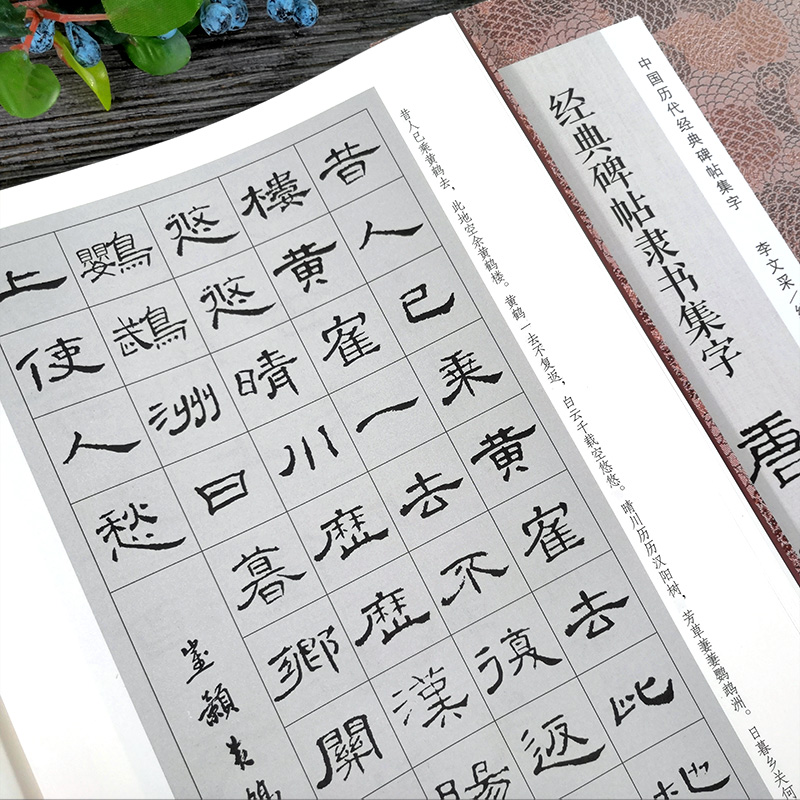 中国历代经典碑帖集字
李文采
经典碑帖隶书集字
唐
昔人已乘黄鹤去，此地空余黄鹤楼。黄鹤一去不复返，白云千载空悠悠。晴川历历汉阳树，芳草萋萋鹦鹉洲。日暮乡关何
昔人已乘黄寉去此地
樓黄寉一去不復返
悠悠晴川歷歷漢陽
鸚鵡洲日暮鄉關
上使人愁
崔顥黄鶴